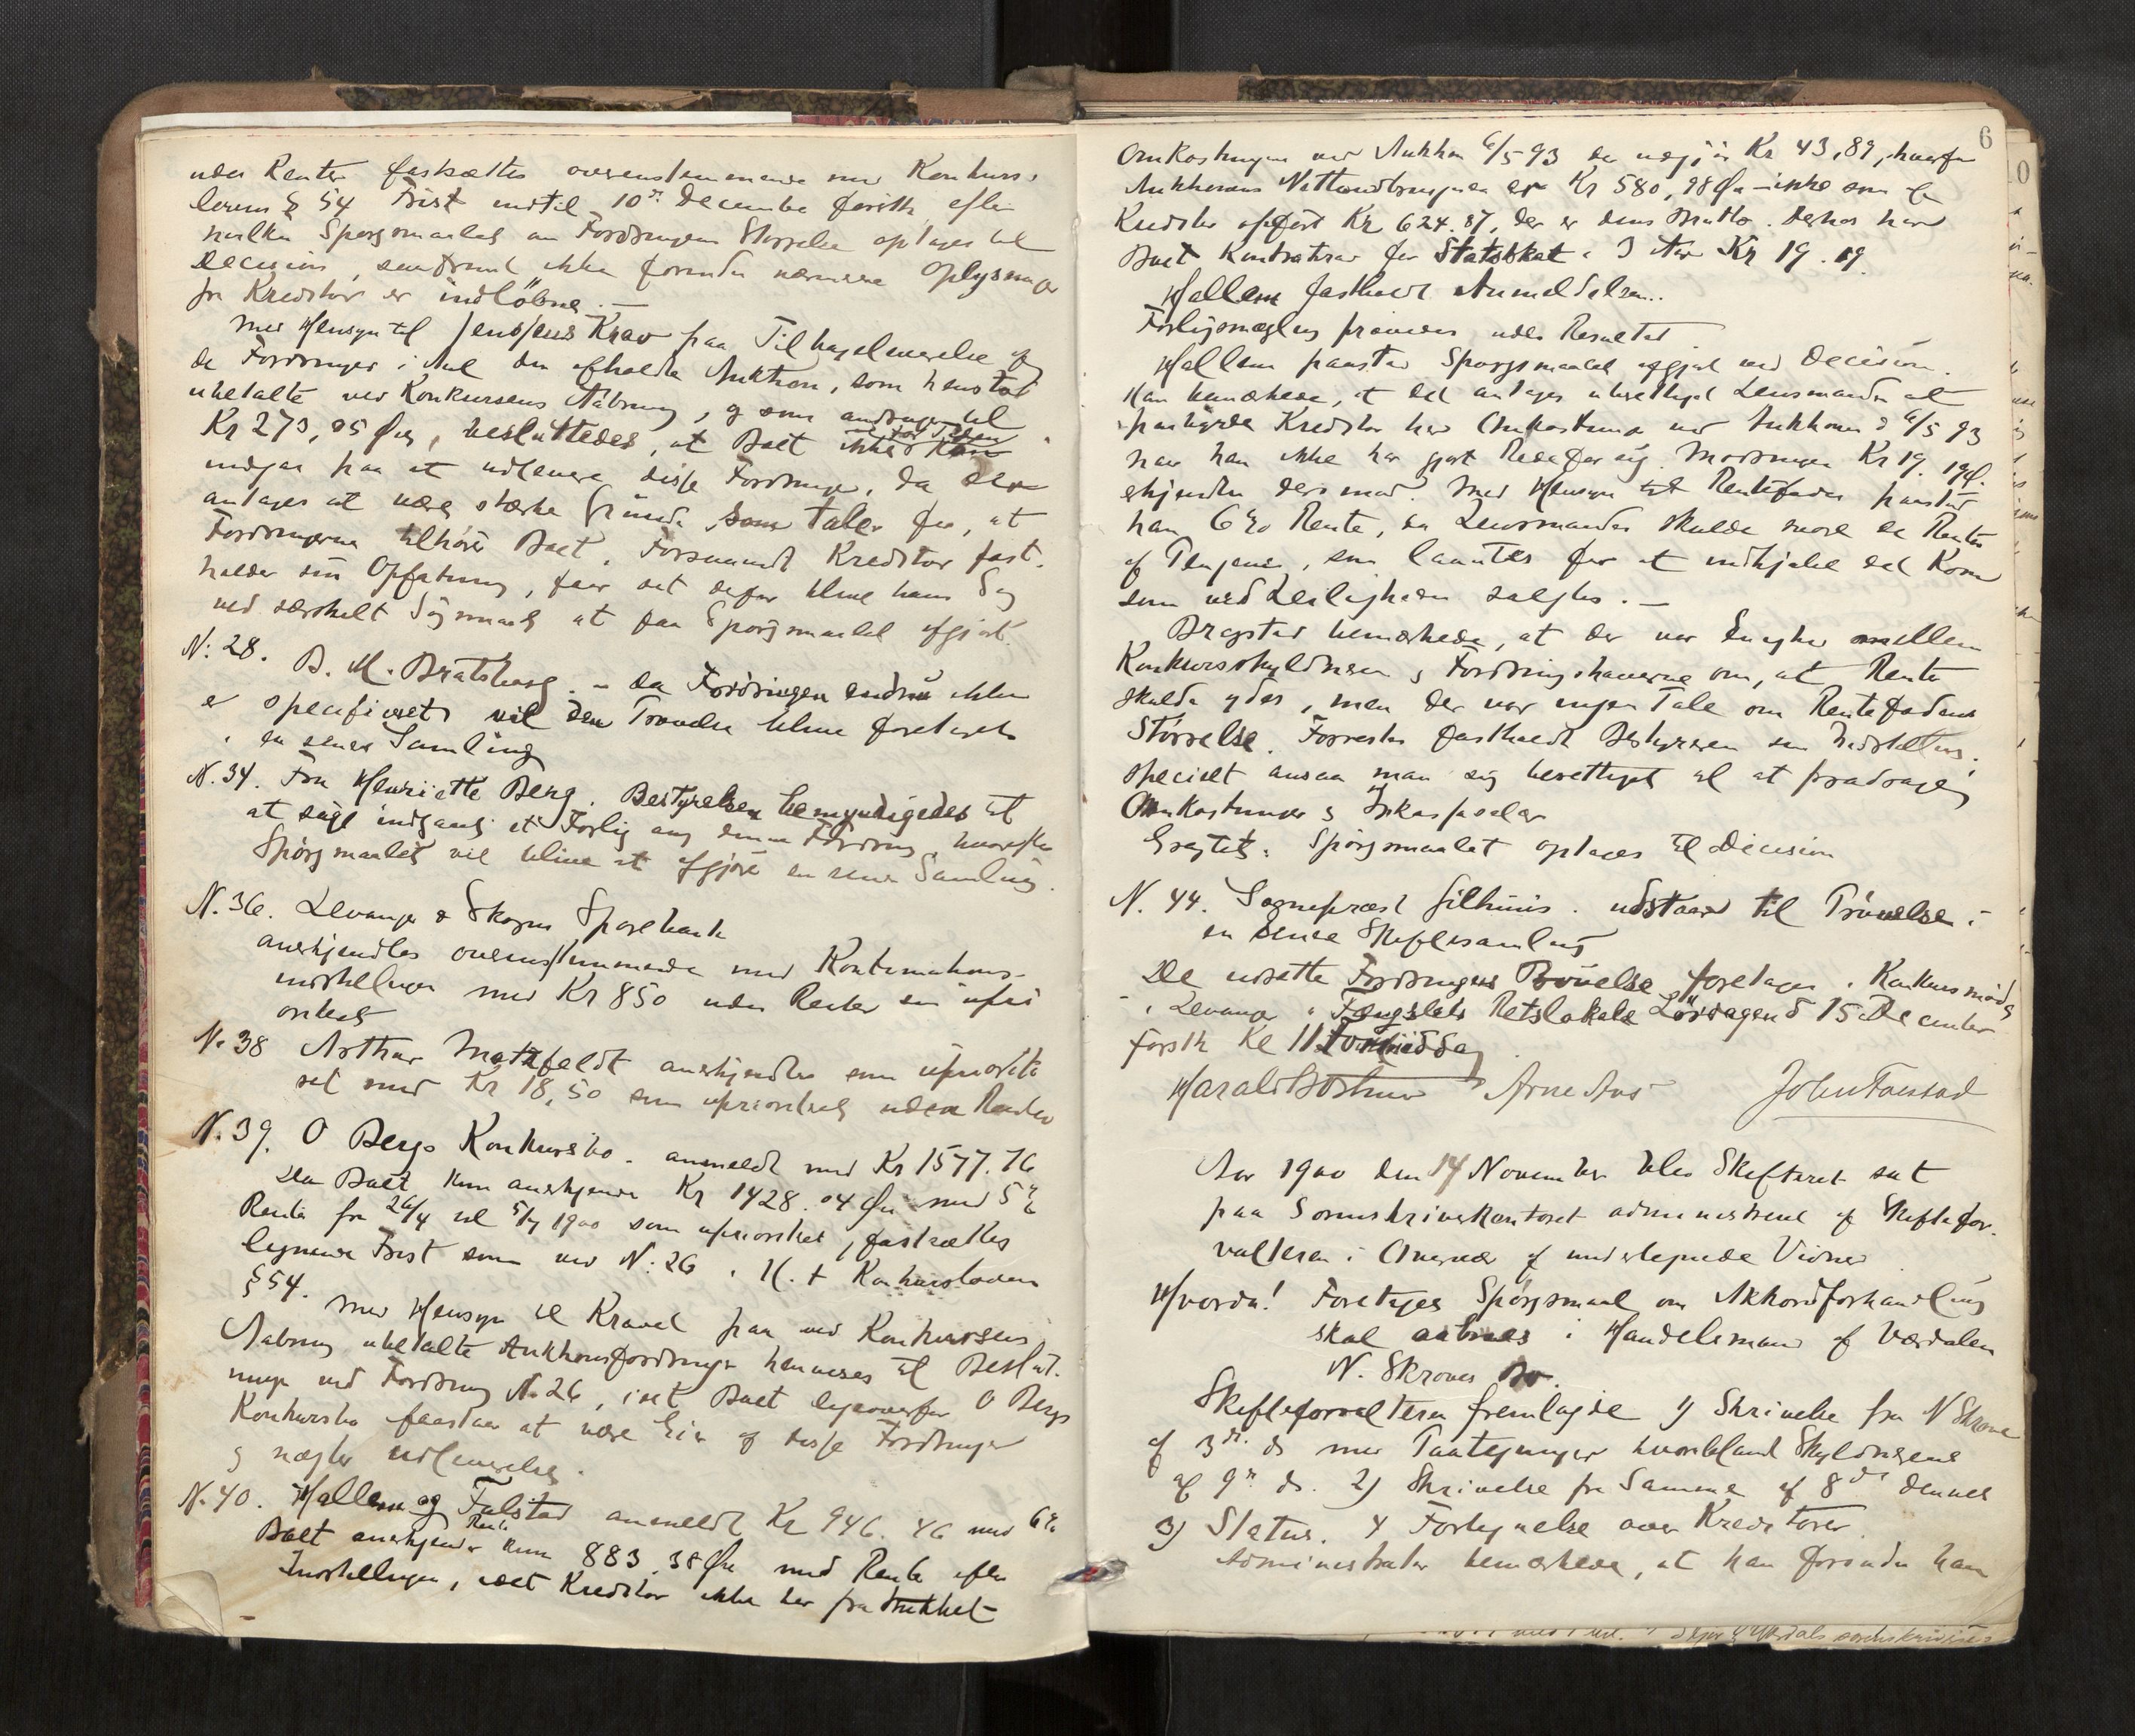 uden Renter fastsættes overensstemmende med Konkurs-
lovens § 54 Frist indtil 10de December førstk. efter
hvilken Spørgsmaalet om Fordringens Størrelse optages til
Decision, saafremt ikke forinden nærmere Oplysninger
fra Kreditor er indløbne. —
Med Hensyn til Krav paa Tilbageleverelse af
de Fordringer i Anl. den afholdte Auktion, som henstod
ubetalte ved Konkursens Aabning, og som andrager til
Kr 273,95 Øre, besluttedes, at Boet ikke for Tiden kan
indgaa paa at udlevere disse Fordringer, da der
antages at være stærke Grunde, som taler for, at
Fordringerne tilhører Boet. Forsaavidt Kreditor fast-
holder sin Opfatning, faar det derfor blive hans Sag
ved særskilt Søgsmaal at faa Spørgsmaalet afgjort.
N: 28. B. M. Bratsberg. – Da Fordringen endnu ikke
er specificeret vil den Prøvelse blive foretaget
i en senere Samling
N. 34. Fru Henriette Berg. Bestyrelsen bemyndigedes til
at søge indgaaet et Forlig ang denne Fordring, hvorefter
Spørgsmaalet vil blive at afgjøre i en senere Samling.
N. 36. Levanger & Skogns Sparebank
anerkjendtes overensstemmende med
indstillingen med Kr 850 uden Renter som uprio
riteret
N. 38 Arthur Motzfeldt anerkjendtes som upriorite
ret med Kr 18,50 som uprioriteret uden Renter
N. 39. O Bergs Konkursbo. anmeldt med Kr 1577.76
Da Boet kun anerkjender Kr 1428.04 Øre med 5%
Rente fra 26/4 til 5/7 1900 som uprioriteret, fastsættes
lignende Frist som ved N: 26. Konkursloven
§ 54.
Med Hensyn til Kravet paa ved Konkursens
Aabning ubetalte Auktionsfordringer henvises til Beslut-
ningen ved Fordring N. 26, idet Boet ligeoverfor O Bergs
Konkursbo paastaar at være Eier af disse Fordringer
og nægter udleverelse.
N. 40. Hallem og Falstad anmeldt Kr 946.46 med 6%
Rente
Boet anerkjender kun 883.38 Øre med Rente efter
Indstillingen, idet Kreditor ikke har fratrukket
6
Omkostninger ved Auktion 6/5 93 der udgjør Kr 43,89, hvorfor
Auktionens Nettoudbringende er Kr 580,98 Øre – ikke som af
Kreditor opført Kr 624.87, der er dens Brutto. Derhos har
Boet Kontrakrav for Statsskat i 3 Aar Kr 19.19
Hallem fastholdt Anmeldelsen..
Forligsmægling prøvedes uden Resultat
Hallem paastod Spørgsmaalet afgjort ved Decision.
Han bemærkede, at det antages uberettiget Lensmanden at
paabyrde Kreditor her Omkostninger ved Auktionen d 6/5 93
naar han ikke har gjort Rede for sig. Kr 19.19 Ø.
erkjendtes dermed. Med Hensyn til Rentefoden paastod
han 6% Rente, da Lensmanden skulde svare de Renter
af Pengene, som laantes for at indkjøbe det Korn
som ved Leiligheden solgtes. —
Bragstad bemærkede, at der var Enighed mellem
Konkursskyldneren & Fordringshaverne om, at Rente
skulde ydes, men der var ingen Tale om Rentefodens
Størrelse. Forresten fastholdt Bestyreren sin Indstilling.
specielt ansaa man sig berettiget til at fradrage
Omkostninger & Inkassosalær
Eragtet: Spørgsmaalet optages til Decision
N. 44. Sogneprest Gilhuus. udstaar til Prøvelse i
en senere Skiftesamling
De udsatte Fordringers Prøvelse foretages i Konkursmøde
i Levanger i Fængslets Retslokale Lørdagen d 15 December
førstk Kl 11 Formiddag
Harald Bothner Arne Aas John Faestad
Aar 1900 den 14 November blev Skifteret sat
paa Sorenskriverkontoret administreret af Skiftefor-
valteren i Overvær af undertegnede Vidner
Hvorda! Foretages Spørgsmaal om Akkordforhandling
skal aabnes i Handelsmand af Værdalen
N. Skroves Bo.
Skifteforvalteren fremlagde 1) Skrivelse fra N Skrove
af 3de ds med Paategninger hvoriblandt Skyldnerens
af 9de ds. 2) Skrivelse fra Samme af 8de dennes
3) Status. 4 Fortegnelse over Kreditorer.
Administrator bemærkede, at han forinden han